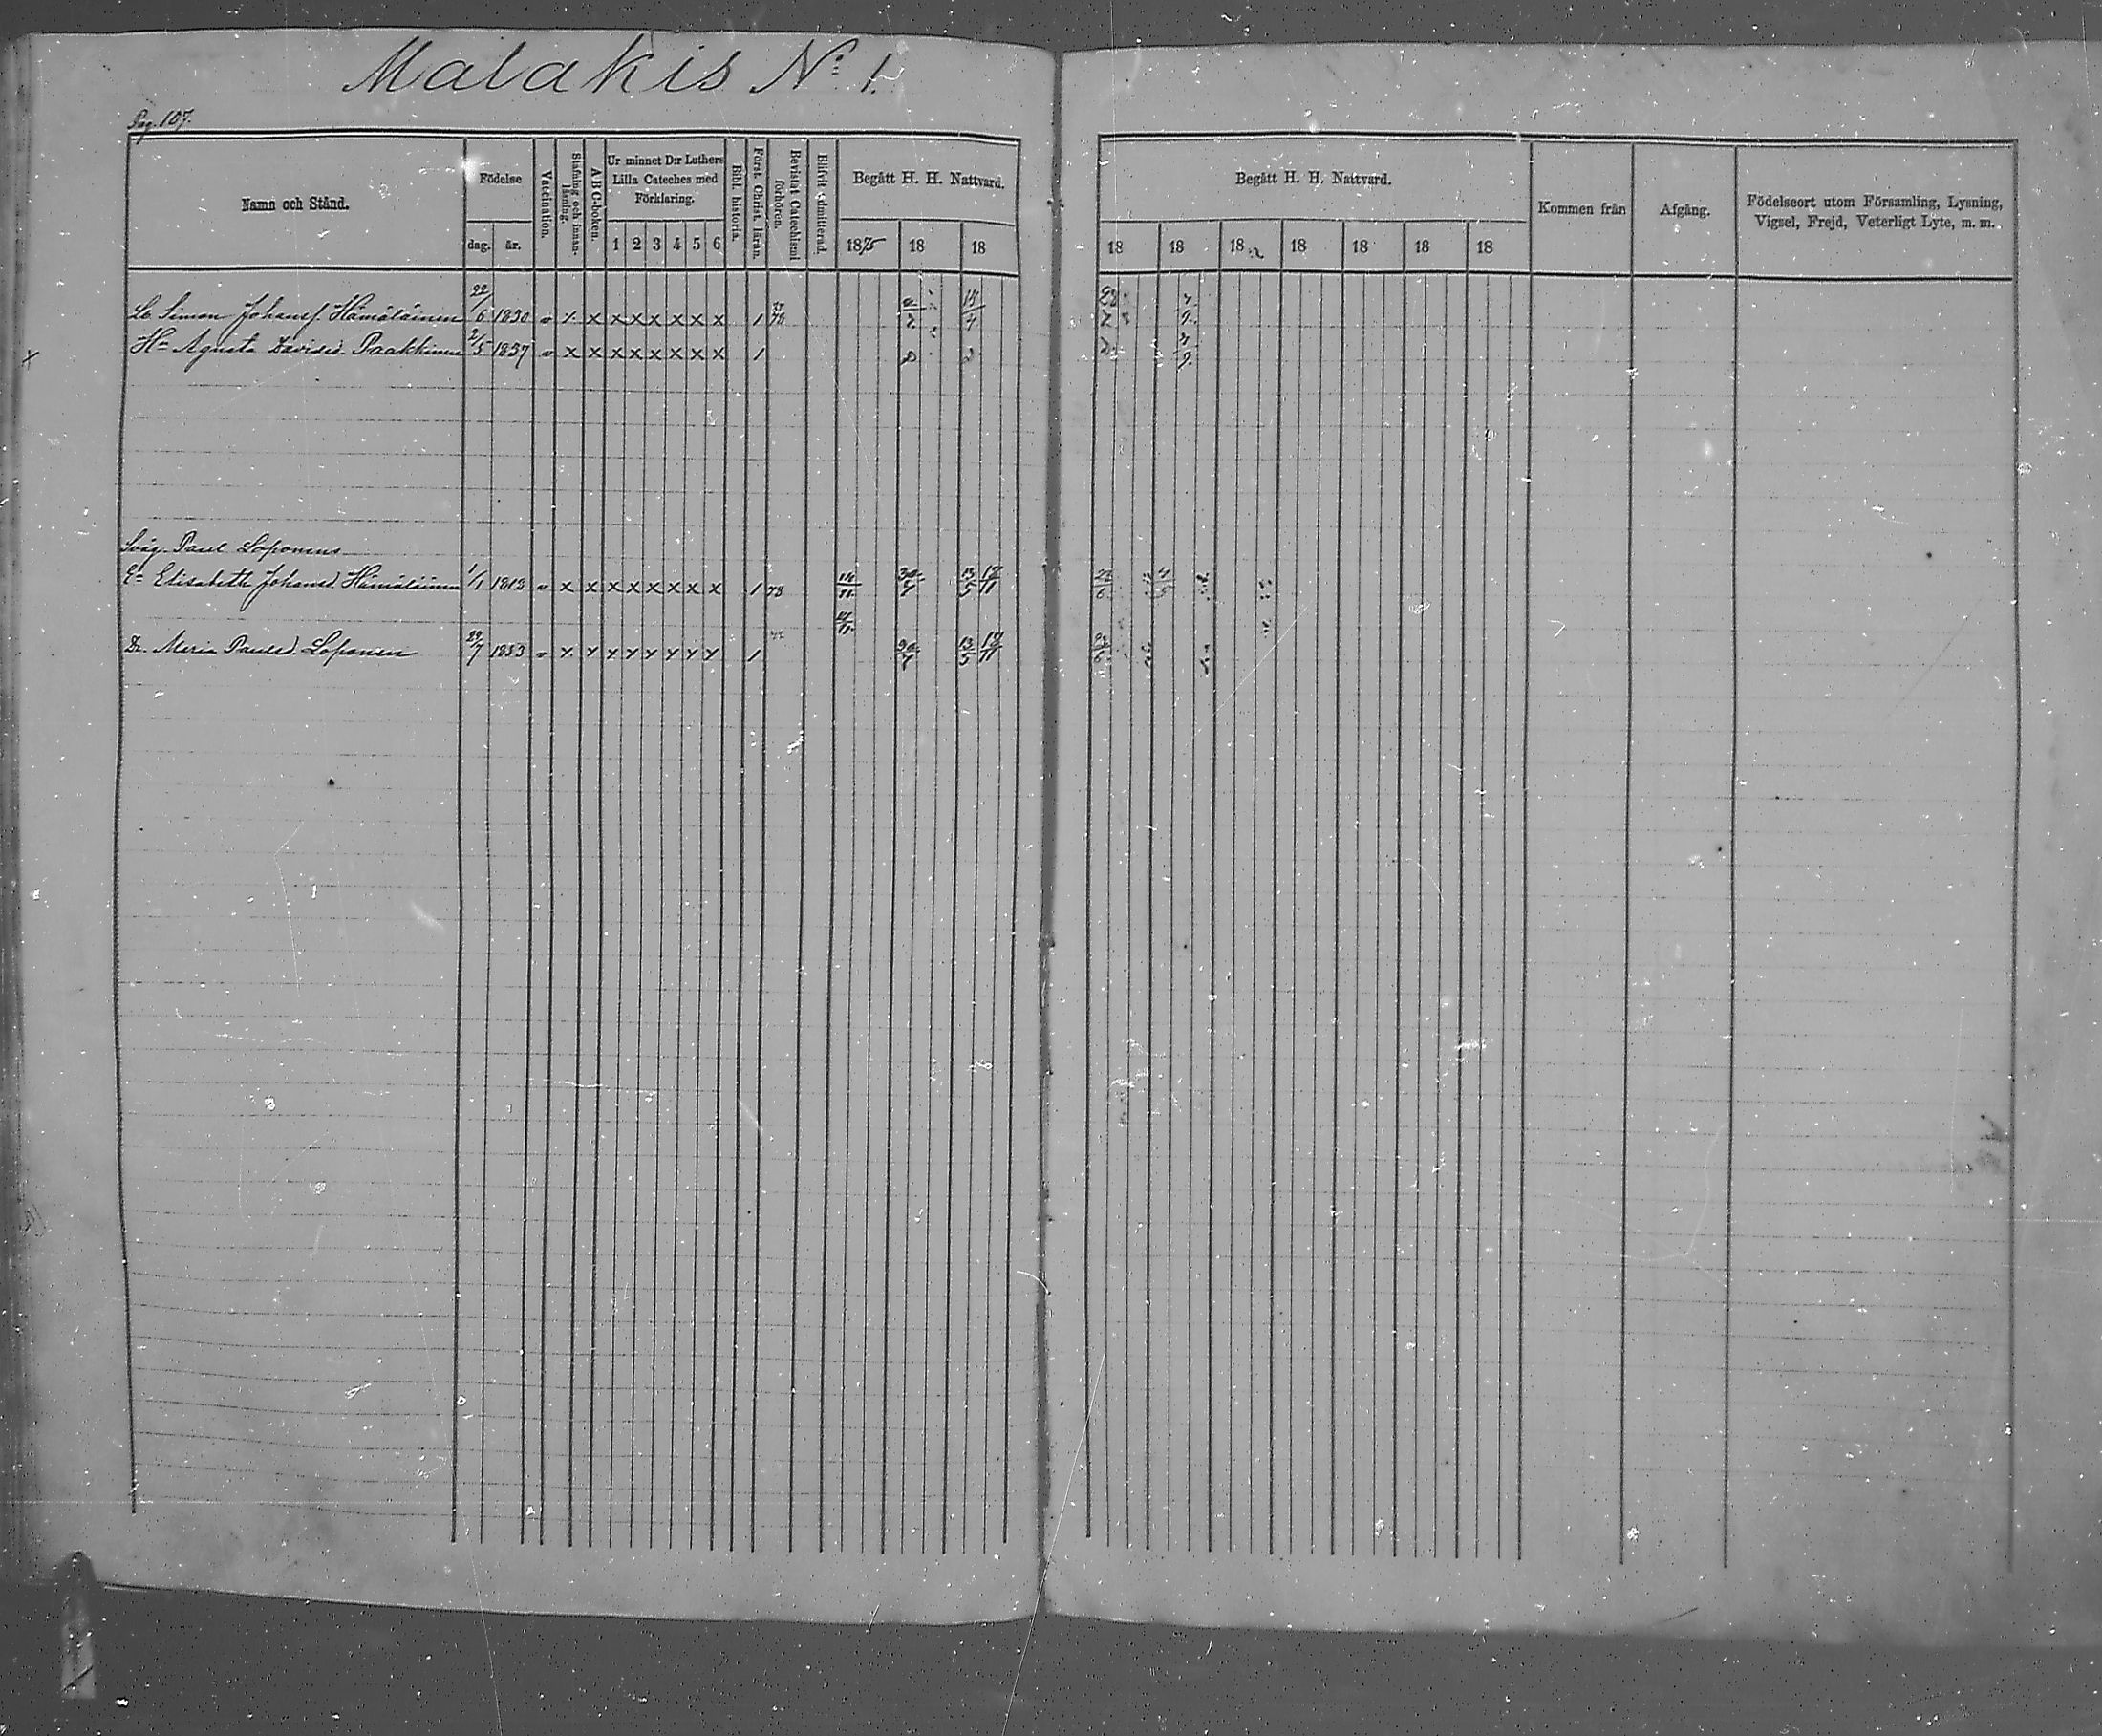 Malakis N:o 1.
Pag. 107.
Namn och Stånd.
Födelse
dag. år.
Vaccination.
Stafning och innan-läsning.
A B C-boken.
Ur minnet D:r Luthers
Lilla Cateches med
Förklaring.
1 2 3 4 5 6
Bibl. historia.
Först. Christ. läran.
Bevistat Catechismi förhören.
Blifvit admitterad.
Begått H. H. Nattvard.
1875 18 18
Begått H. H. Nattvard.
18 18 18 18 18 18 18
Kommen från
Afgång.
Födelseort utom Församling, Lysning,
Vigsel, Frejd, Veterligt Lyte, m. m.
Simon Johans. Hämäläinen 22/6 1830 v x x x x x x x x 1 78
Hu Agneta Davidsd. Paakkinen 2/5 1837 v x x x x x x x x 1
Svåg. Paul Loponens
E:a Elisabeth Johansd. Hämäläinen 1/1 1813 v x x x x x x x x 1 78 13/5 18/11
D:r Maria Paulsd. Loponen 29/7 1853 v x x x x x x x x 1 13/5 18/11